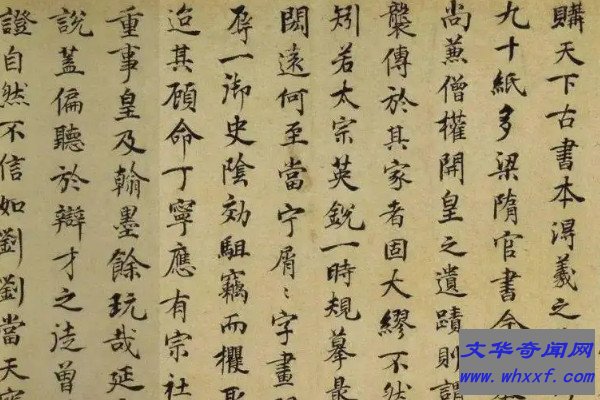 購天下古書本淂羲之
九十紙多梁隋官書
尚兼僧權開皇之遺蹟則謂
襲傳於其家者固大繆不然
矧若太宗英銳一時規摹最
閎遠何至當宁屑〻字畫
辱一御史陰効駔竊而攫
迨其顧命丁寧應有宗社
重事皇及翰墨餘玩哉延
說蓋偏聽於辯才之徒曾
證自然不信如劉劉當天
文华奇闻网
www.whxxf.com